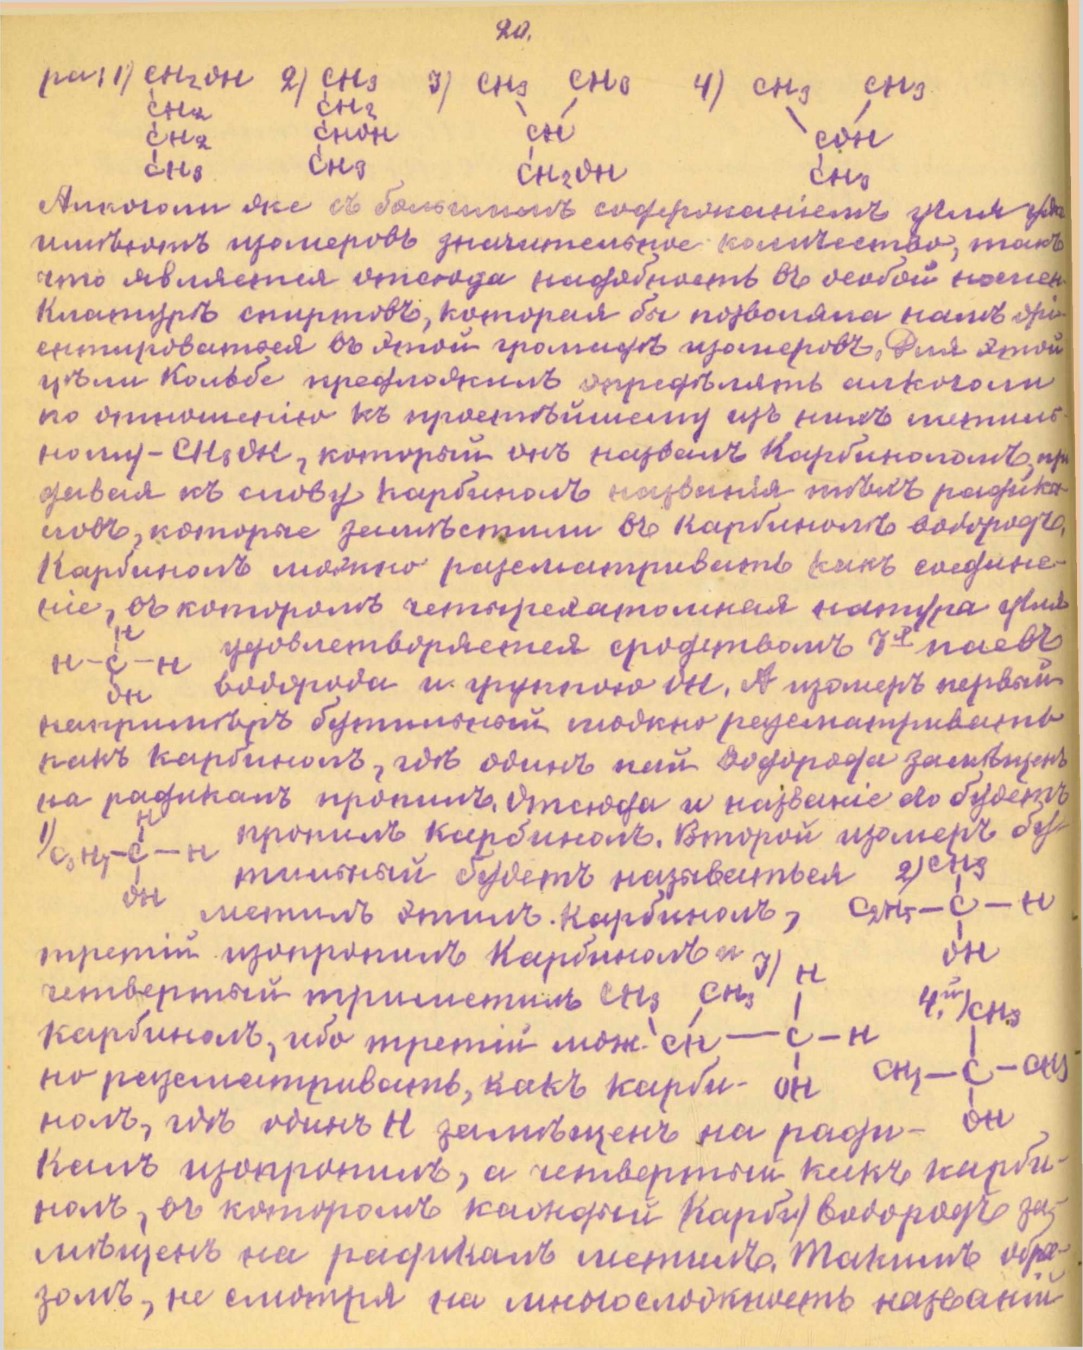 20.
ра: 1) CH₂OH 2) CH₃ 3) CH₃ CH₃ 4) CH₃ CH₃
CH₂ CH₂ CH COH
CH₂ CHOH CH₂OH CH₃
CH₃ CH₃
Алкоголи же съ большимъ содержаніемъ угля
имѣютъ изомеровъ значительное количество, такъ
что является отсюда надобность въ особой номен-
клатурѣ спиртовъ, которая бы позволяла намъ орі-
ентироваться въ этой громадѣ изомеровъ. Для этой
цѣли Кольбе предложилъ опредѣлять алкоголи
по отношенію къ простѣйшему изъ нихъ метиль-
ному - CH₃OH, который онъ назвалъ Карбиноломъ, при
давая къ слову карбинолъ названія тѣхъ радика-
ловъ, которые замѣстили въ Карбинолѣ водородъ.
Карбинолъ можно разсматривать какъ соедине-
ніе, въ которомъ четырехатомная натура угля
H
H-C-H удовлетворяется сродствомъ 3ˣ паевъ
OH водорода и группою OH. А изомеръ первый
напримѣръ бутильный можно разсматривать
какъ карбинолъ, гдѣ одинъ пай водорода замѣщенъ
на радикалъ пропилъ. Отсюда и названіе его будетъ
H
1) C₃H₇-C-H пропилъ карбинолъ. Второй изомеръ бу-
OH тильный будетъ называться 2) CH₃
метилъ этилъ карбинолъ, C₂H₅-C-H
третій изопропилъ Карбинолъ и 3) H OH
четвертый триметилъ CH₃ CH₃ 4.й) CH₃
карбинолъ, ибо третій мож- CH-C-H
но разсматривать, какъ карби- OH CH₃-C-CH₃
нолъ, гдѣ одинъ H замѣщенъ на ради- OH
калъ изопропилъ, а четвертый какъ карби-
нолъ, въ которомъ каждый (Карби) водородъ за-
мѣщенъ на радикалъ метилъ. Такимъ обра-
зомъ, не смотря на многосложность названій